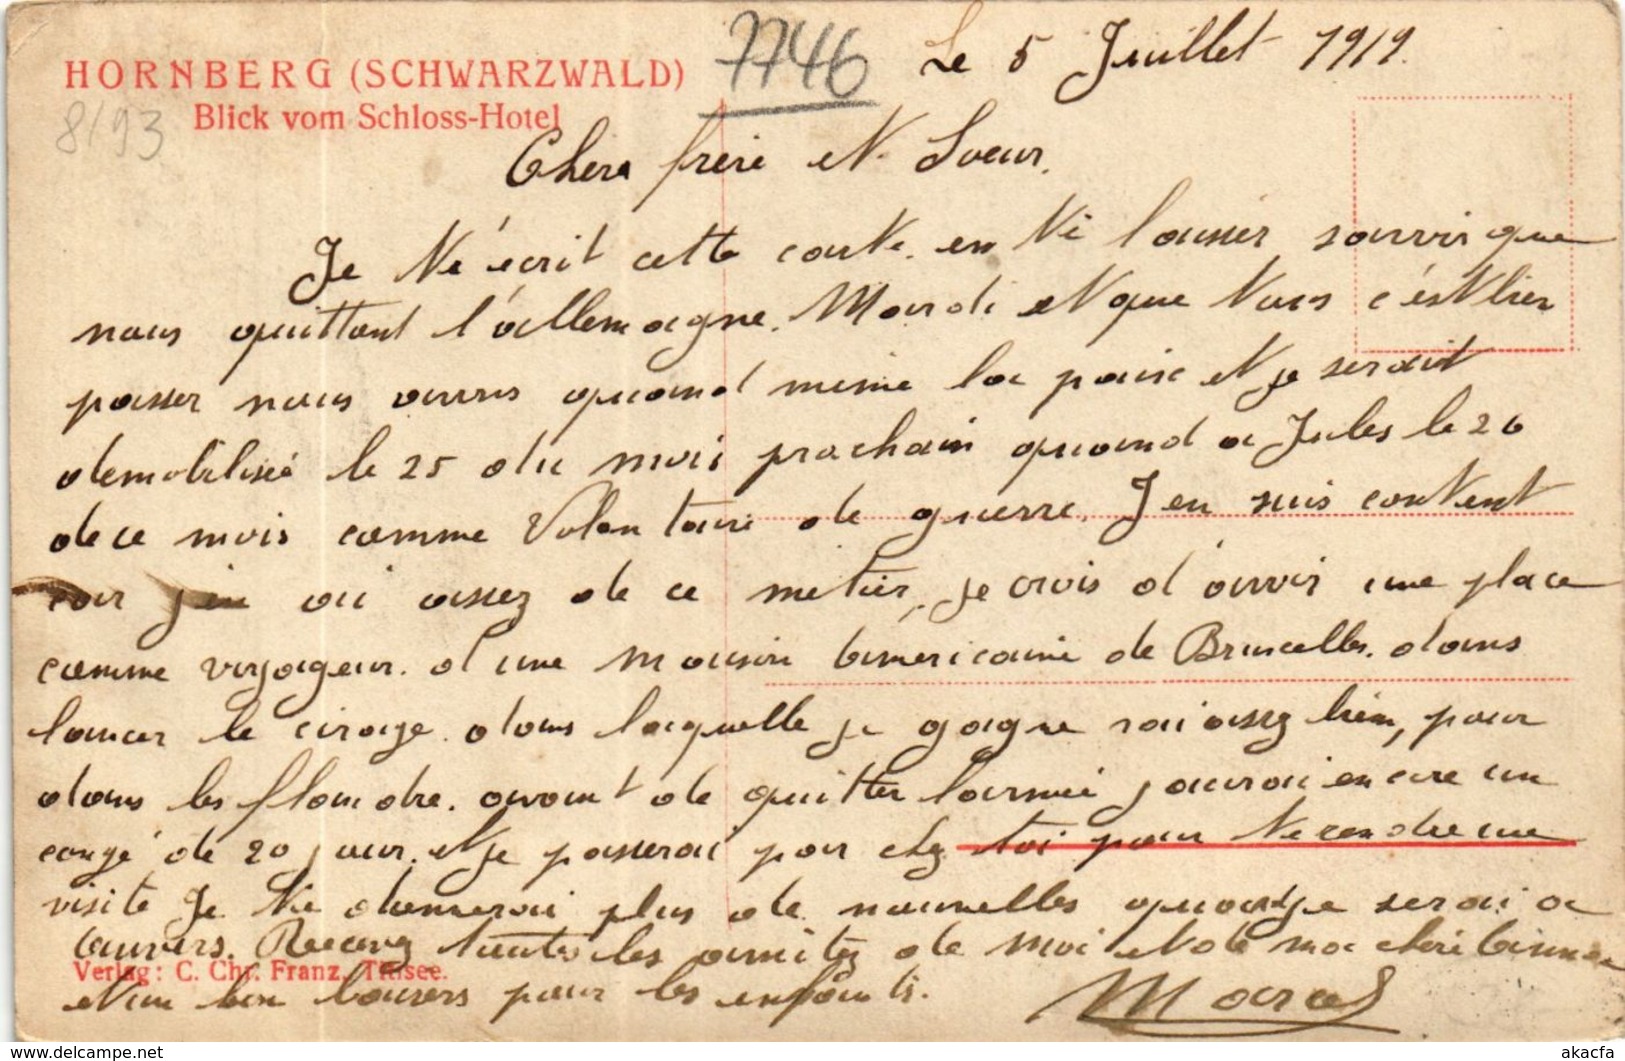 7746
Le 5 Juillet 1919.
HORNBERG (SCHWARZWALD)
8/93
Blick vom Schloss-Hotel
Chers frère et Soeur.
Je t'é écrit cette carte. en te laisser savoir que
nous quittont l'allemagne. Mardi et que tous c'est bien
passer nous avons quand même la paix et je serait
demobilisé le 25 du mois prochain quand a Jules le 26
de ce mois comme Volontaire de guerre. J en suis content
car j'en ai assez de ce métier, je crois d'avoir une place
comme voyageur. d'une maison américaine de Bruxelles. dans
lancer le cirage. dans laquelle je gagnerai assez bien, pour
dans les flandre. avant de quitter larmée j aurai encore un
congé de 20 jour. et je passerai par chez toi pour te rendre une
visite Je te donnerai plus de nouvelles quand je serai a
anvers. Recevez toutes les amitez de moi et de ma chère
Verlag: C. Chr. Franz, Titisee.
et un bon baisers pour les enfants.
Marcel
akacfa